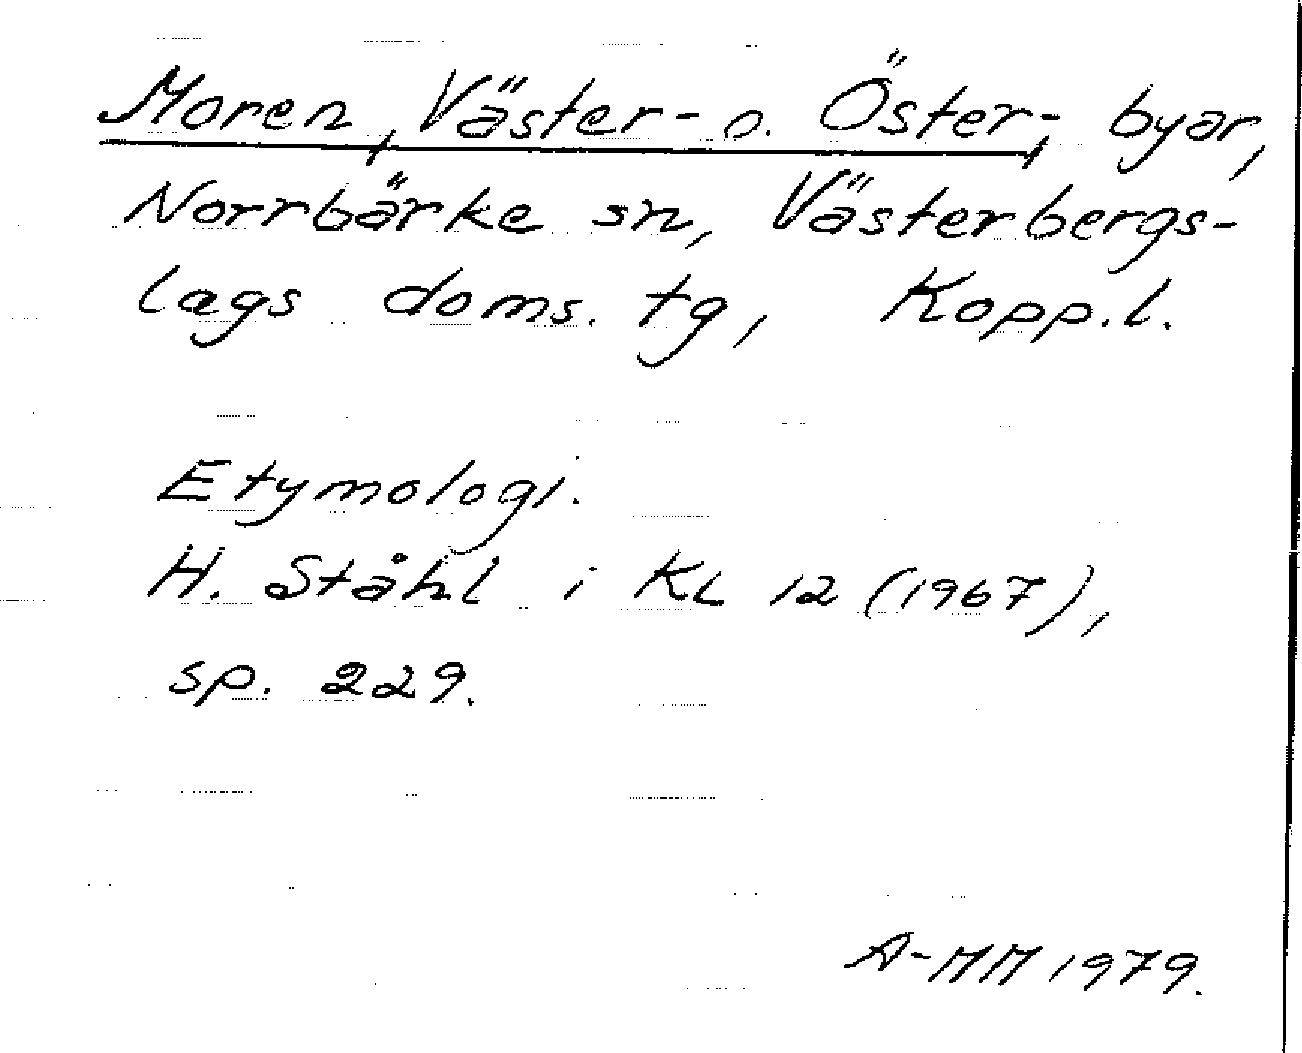 Moren, Väster- o. Öster-, byar,
Norrbärke sn, Västerbergs-
lags doms. tg, Kopp.l.
Etymologi.
H. Ståhl i KL 12 (1967),
sp. 229.
A-MM 1979.